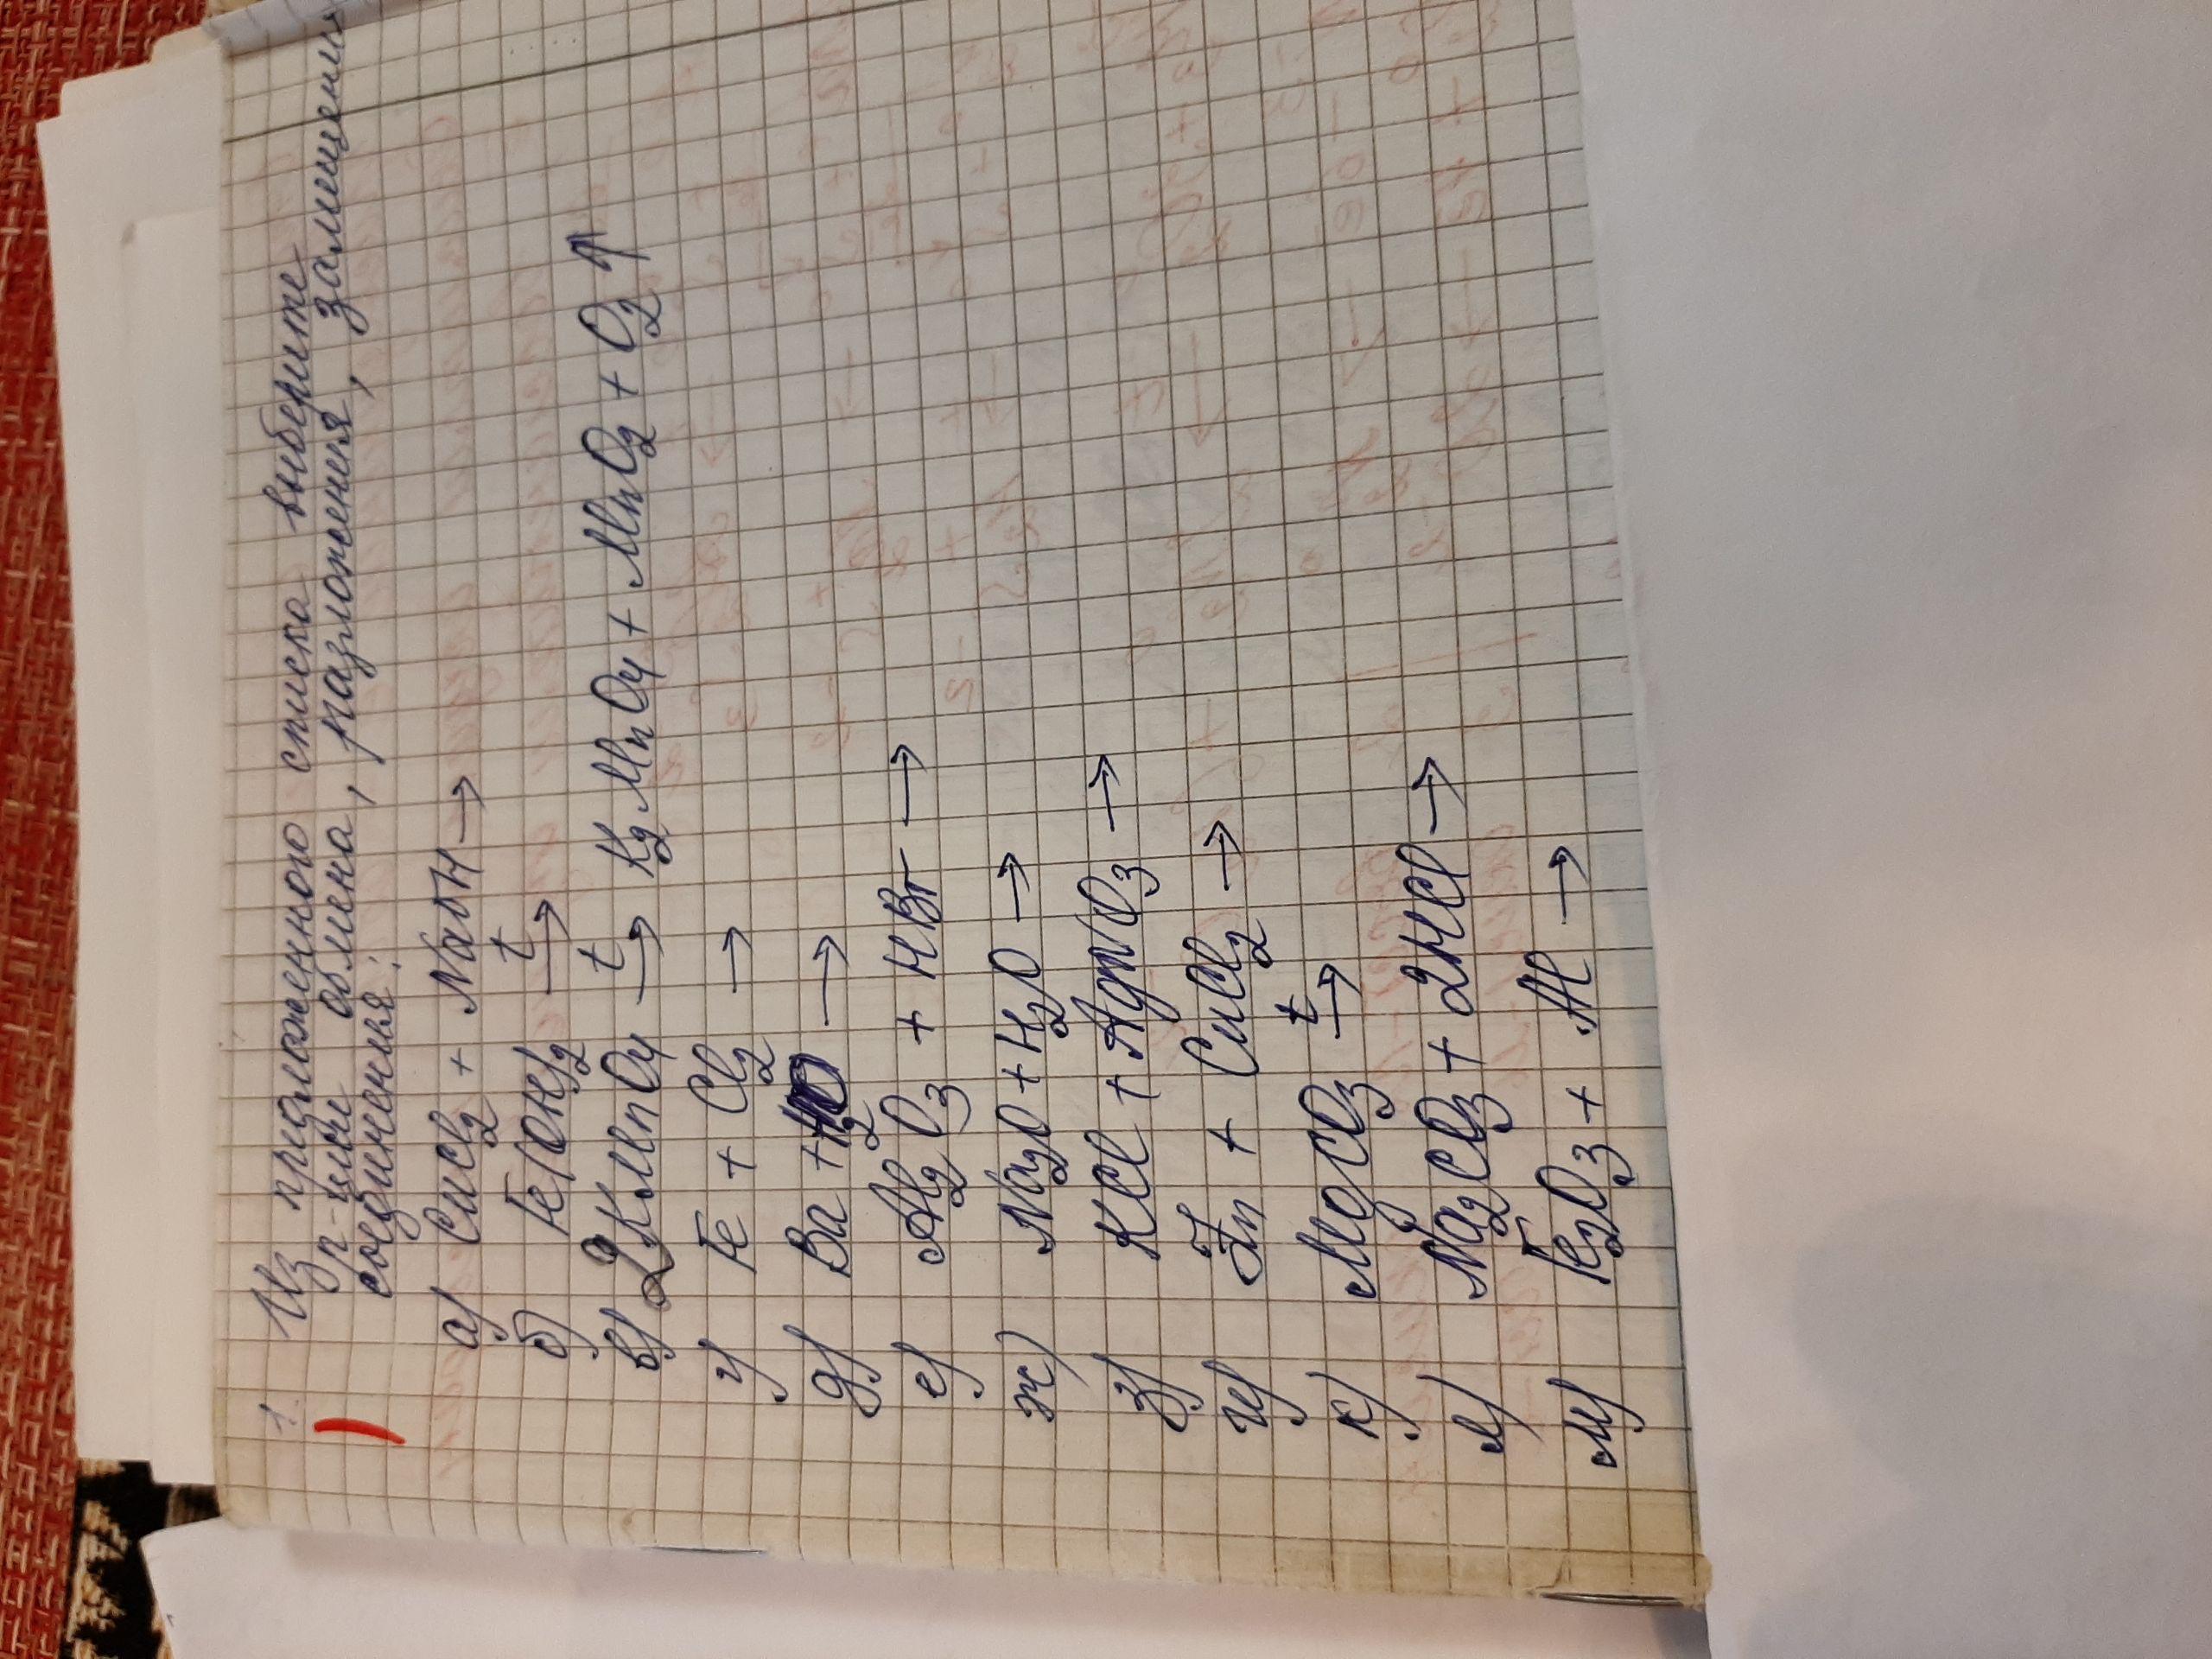 1. Из приложенного списка выберите
р-ции обмена, разложения, замещения
соединения:
а) CuCl2 + NaOH →
б) Fe(OH)2 t→
в) 2KMnO4 t→ K2MnO4 + MnO2 + O2↑
г) Fe + Cl2 →
д) Ba + H2O →
е) Al2O3 + HBr →
ж) Na2O + H2O →
з) KCl + AgNO3 →
и) Zn + CuCl2 →
к) MgCO3 t→
л) Na2CO3 + 2HCl →
м) Fe2O3 + Al →